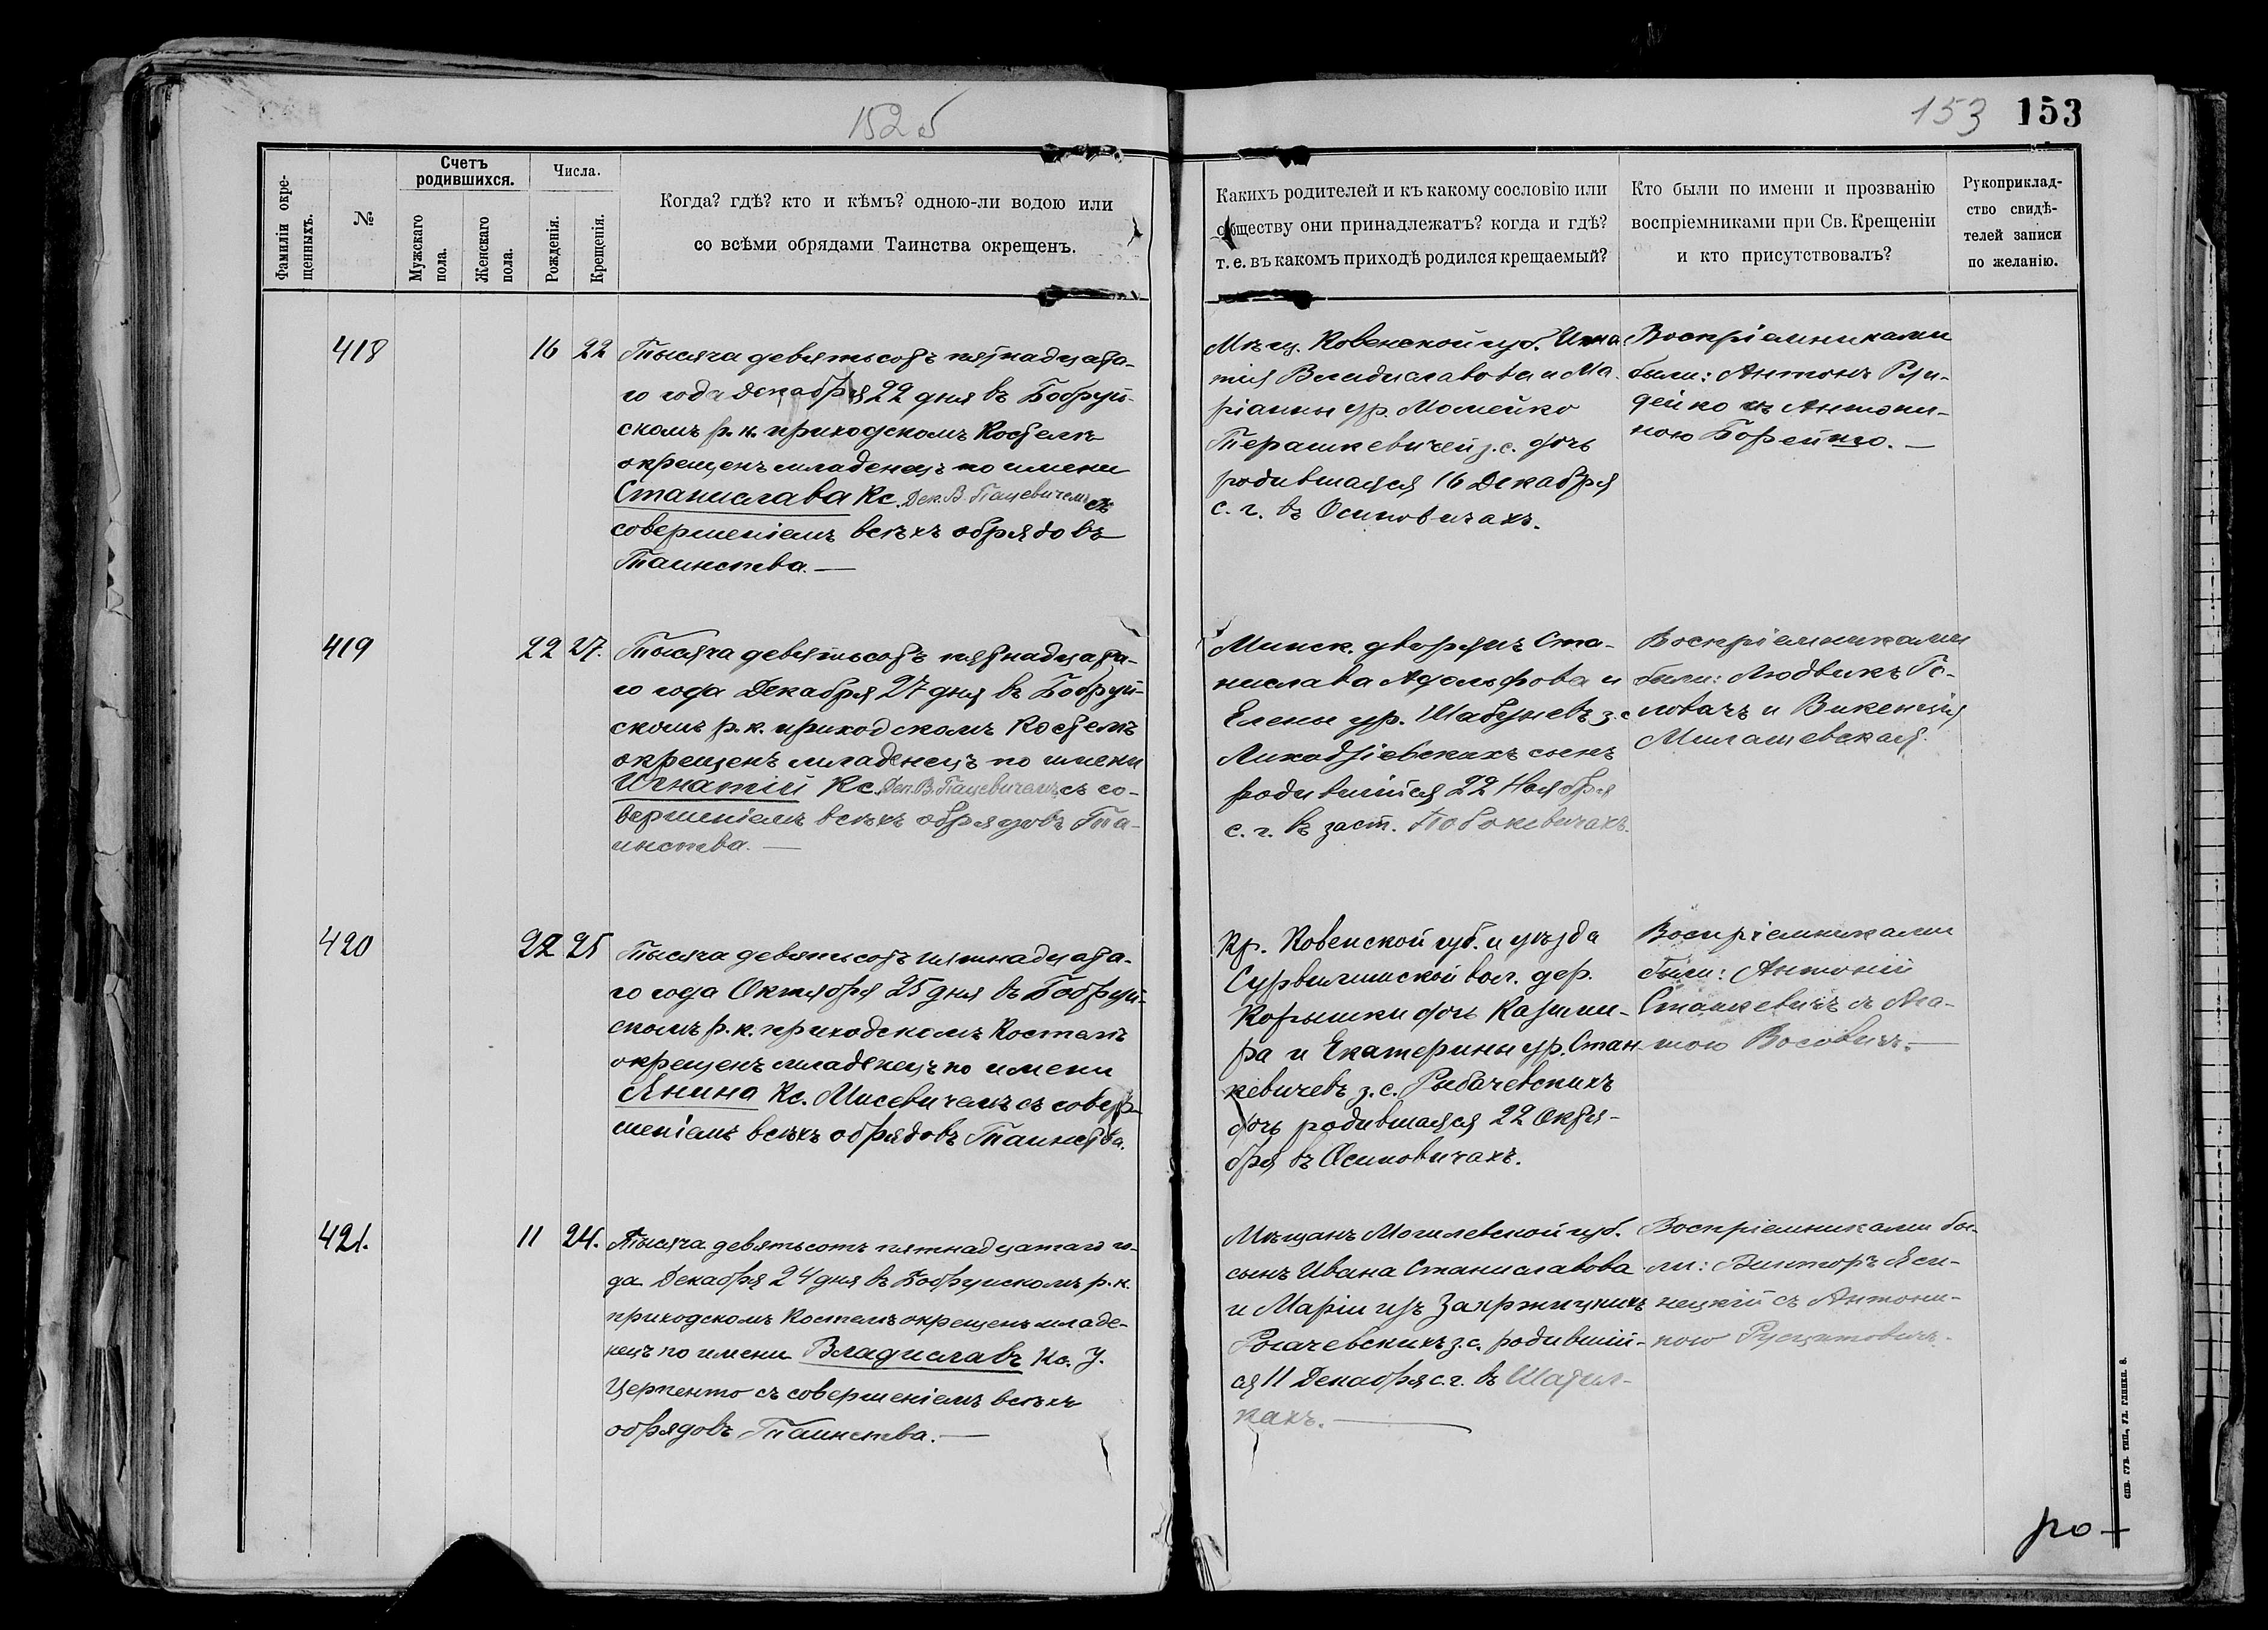 152 б
153 153
Фамиліи окре-
щенныхъ.
№
Счетъ
родившихся.
Мужскаго
пола.
Женскаго
пола.
Числа.
Рожденія.
Крещенія.
Когда? гдѣ? кто и кѣмъ? одною-ли водою или
со всѣми обрядами Таинства окрещенъ.
Какихъ родителей и къ какому сословію или
обществу они принадлежатъ? когда и гдѣ?
т. е. въ какомъ приходѣ родился крещаемый?
Кто были по имени и прозванію
воспріемниками при Св. Крещеніи
и кто присутствовалъ?
Рукоприклад-
ство свидѣ-
телей записи
по желанію.
418
16 22
Тысяча девятьсотъ пятнадцата-
го года Декабря 22 дня въ Бобруй-
скомъ р. к. приходскомъ Костелѣ
окрещенъ младенецъ по имени
Станислава Кс. Дек. В. Пацевичемъ съ
совершеніемъ всѣхъ обрядовъ
Таинства. —
Мѣщ. Ковенской губ. Игна
тія Владиславова и Ма-
ріанны ур. Момейко
Терашкевичей з. с. дочь
родившаяся 16 Декабря
с. г. въ Осиповичахъ.
Воспріемниками
были: Антонъ
съ Антони-
ною
419
22 27.
Тысяча девятьсотъ пятнадцата-
го года Декабря 27 дня въ Бобруй-
скомъ р. к. приходскомъ Костелѣ
окрещенъ младенецъ по имени
Игнатій Кс. Дек. В. Пацевичемъ съ со-
вершеніемъ всѣхъ обрядовъ Та-
инства. —
Минск. дворянъ Ста-
нислава Адольфова и
Елены ур. з. с.
сынъ
родившійся 22 Ноября
с. г. въ заст.
Воспріемниками
были: Людвикъ Го-
ловачъ и Викентія
Милашевская.
420
22 25
Тысяча девятьсотъ пятнадцата-
го года Октября 25 дня въ Бобруй-
скомъ р. к. приходскомъ Костелѣ
окрещенъ младенецъ по имени
Янина Кс. Мисевичемъ съ совер-
шеніемъ всѣхъ обрядовъ Таинства.
Кр. Ковенской губ. и уѣзда
Сурвилишской вол. дер.
дочь Казими-
ра и Екатерины ур. Стан-
кевичевъ з. с. Рыбачевскихъ
дочь родившаяся 22 Октя-
бря въ Осиповичахъ.
Воспріемниками
были: Антоній
Станкевичъ съ
421.
11 24.
Тысяча девятьсотъ пятнадцатаго го-
да Декабря 24 дня въ Бобруйскомъ р. к.
приходскомъ Костелѣ окрещенъ младе-
нецъ по имени Владиславъ Кс. У.
Церпенто съ совершеніемъ всѣхъ
обрядовъ Таинства. —
Мѣщанъ Могилевской губ.
сынъ Ивана Станиславова
и Маріи изъ Закржицкихъ
Рогачевскихъ з. с. родившій-
ся 11 Декабря с. г. въ Шатил-
кахъ. —
Воспріемниками бы-
ли: Викторъ Яси-
нецкій съ Антони-
ною
СПБ. ГУБ. ТИП., УЛ. ГЛИНКИ. 8.